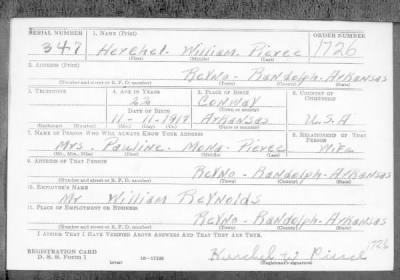 SERIAL NUMBER 1. NAME (Print) ORDER NUMBER
347 Herchel William Pierce 1726
(First) (Middle) (Last)
2. ADDRESS (Print)
Reyno - Randolph - Arkansas
(Number and street or R. F. D. number) (Town) (County) (State)
3. TELEPHONE 4. AGE IN YEARS 5. PLACE OF BIRTH 6. COUNTRY OF CITIZENSHIP
22 Conway
DATE OF BIRTH
11-11-1917 Arkansas U.S.A
(Exchange) (Number) (Mo.) (Day) (Yr.) (State or country)
7. NAME OF PERSON WHO WILL ALWAYS KNOW YOUR ADDRESS 8. RELATIONSHIP OF THAT PERSON
Mrs. Pauline - Mona - Pierce Wife
(Mr., Mrs., Miss) (First) (Middle) (Last)
9. ADDRESS OF THAT PERSON
Reyno - Randolph - Arkansas
(Number and street or R. F. D. number) (Town) (County) (State)
10. EMPLOYER'S NAME
Mr William Reynolds
11. PLACE OF EMPLOYMENT OR BUSINESS
Reyno - Randolph - Arkansas
(Number and street or R. F. D. number) (Town) (County) (State)
I AFFIRM THAT I HAVE VERIFIED ABOVE ANSWERS AND THAT THEY ARE TRUE.
1726
REGISTRATION CARD
D. S. S. Form 1 (over) Herchel W Pierce
(Registrant's signature)